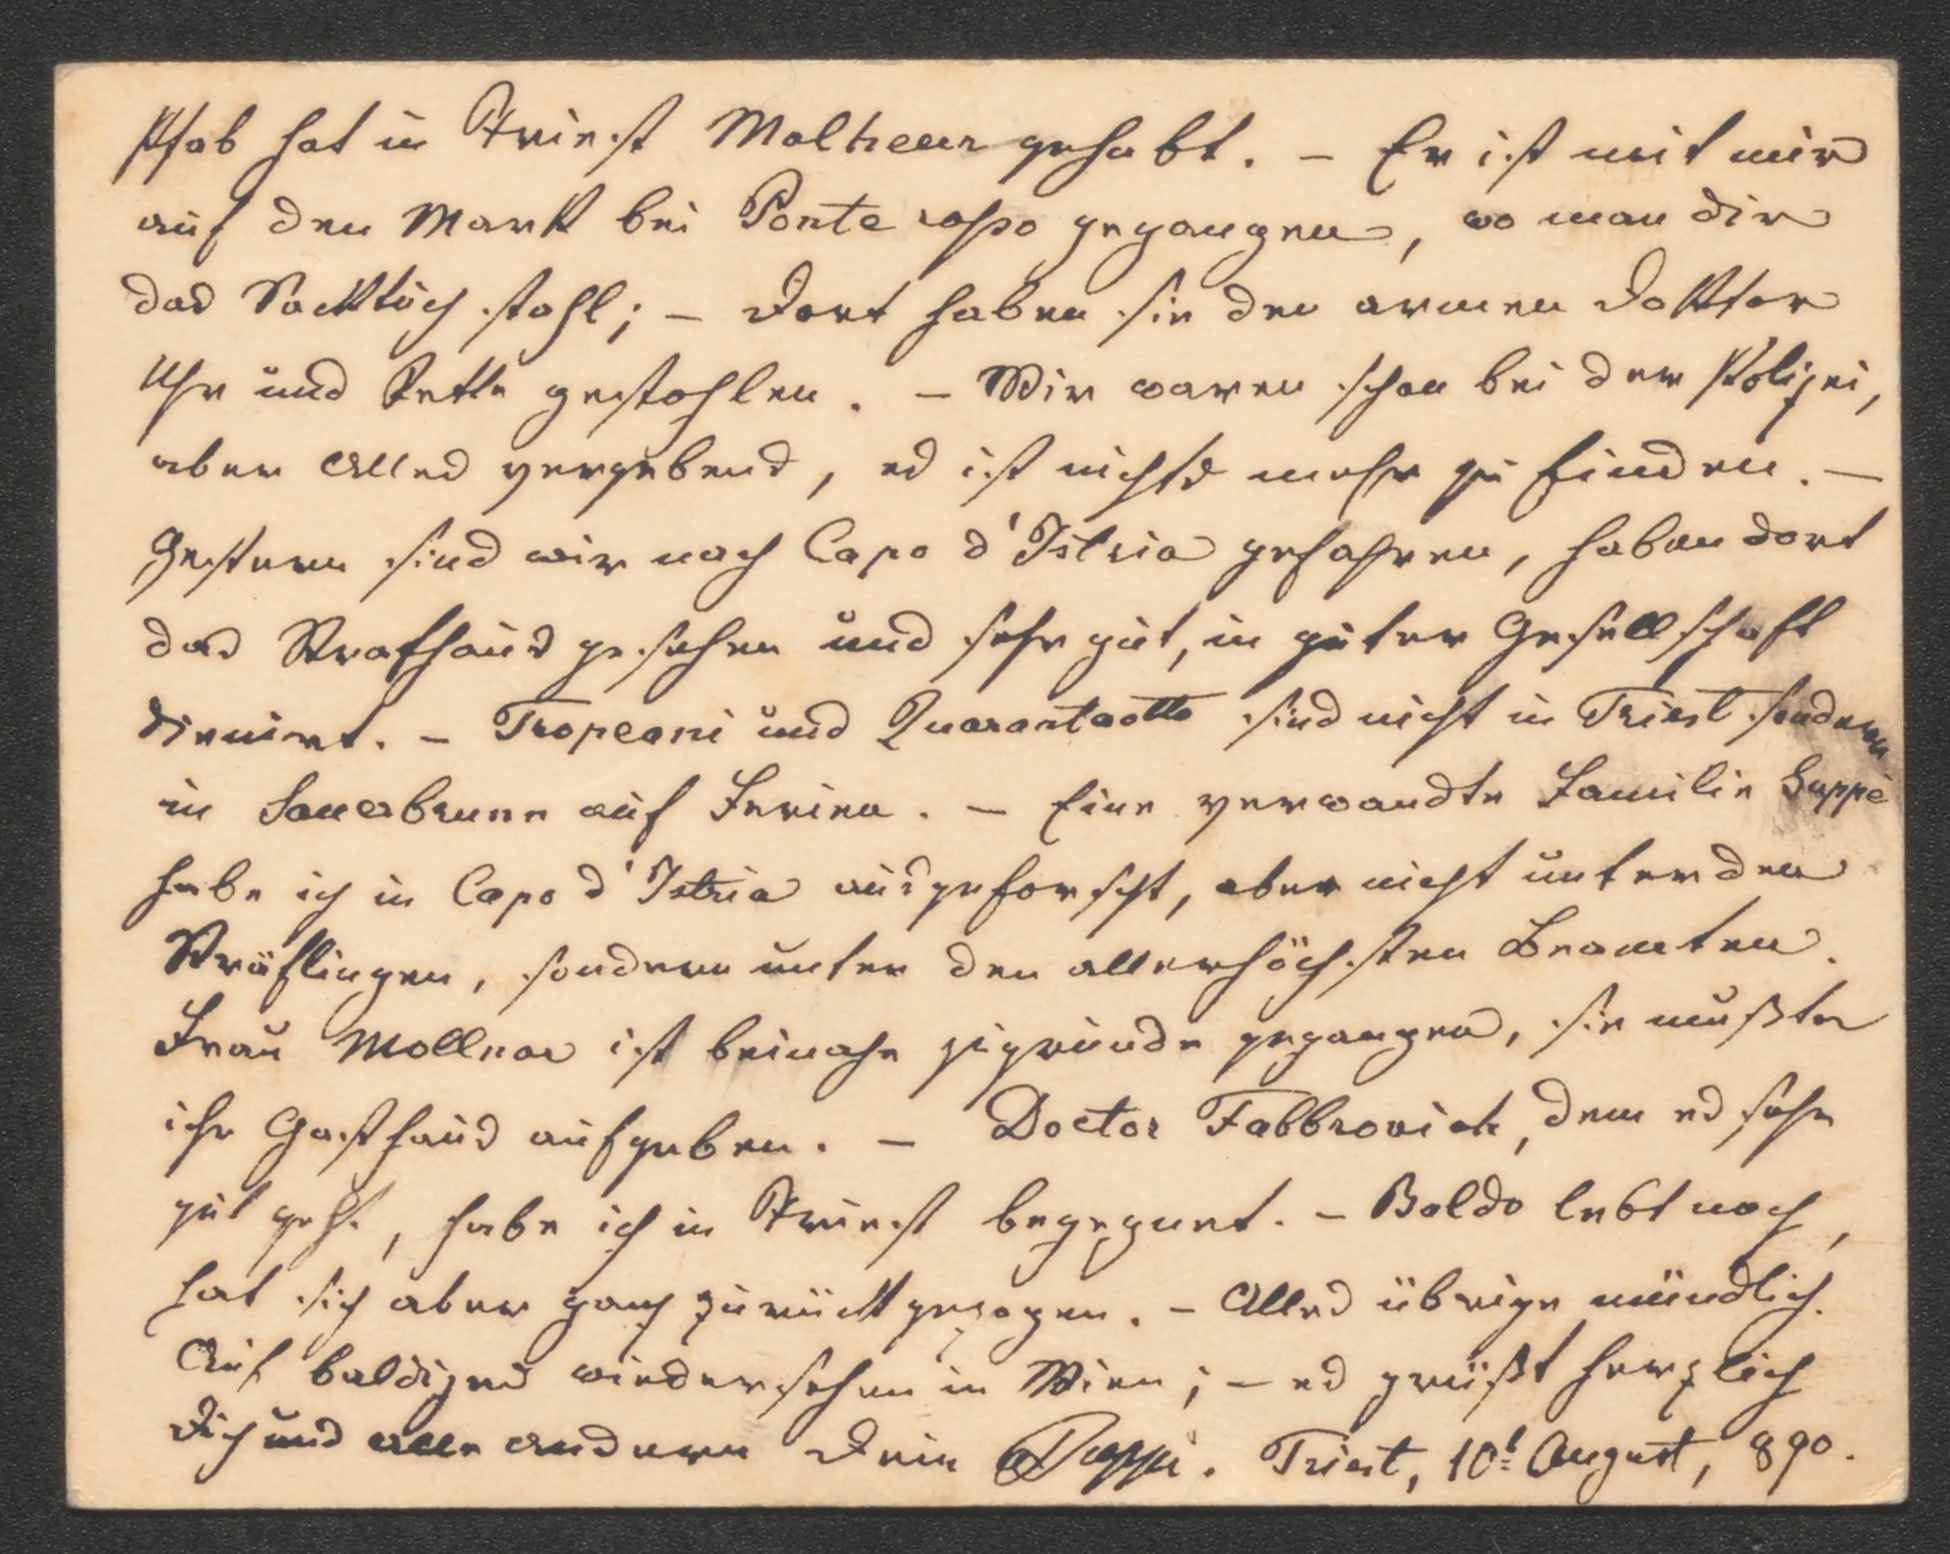 Pfab hat in Triest Malheur gehabt. – Er ist mit mir
auf den Markt bei Ponte rosso gegangen, wo man dir
das Sacktuch stahl; – dort haben sie den armen Doktor
Uhr und Kette gestohlen. – Wir waren schon bei der Polizei,
aber Alles vergebens, es ist nichts mehr zu finden. –
Gestern sind wir nach Capo d'Istria gefahren, haben dort
das Strafhaus gesehen und sehr gut, in guter Gesellschaft
diniert. – Tropeani und Quarantaotto sind nicht in Triest sondern
in Sauerbrunn auf Ferien. – Eine verwandte Familie Suppé
habe ich in Capo d'Istria ausgeforscht, aber nicht unter den
Sträflingen, sondern unter den allerhöchsten Beamten.
Frau Mollnar ist beinahe zugrunde gegangen, sie mußte
ihr Gasthaus aufgeben. – Doctor Fabbrovich, dem es sehr
gut geht, habe ich in Triest begegnet. – Baldo lebt noch,
hat sich aber ganz zurückgezogen. – Alles übrige mündlich.
Auf baldiges wiedersehen in Wien; – es grüßt herzlich
Dich und alle anderen Dein Suppé. Triest, 10t August, 890.